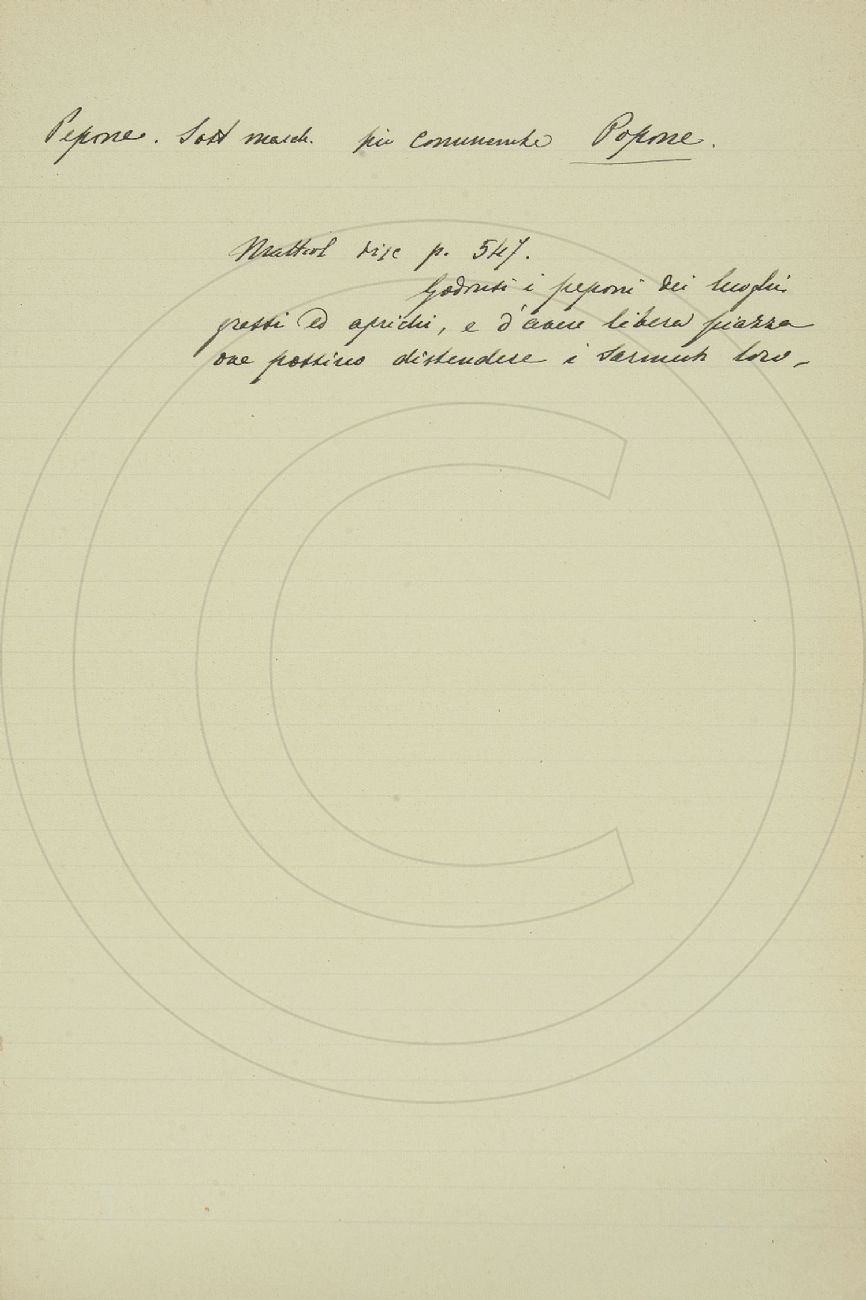 Pepone. Sost masch. più comunemente Popone.
Mattiol disc p. 547.
Godonsi i peponi dei luoghi
grassi ed aprichi, e d'avere libera piazza
ove possino distendere i sarmenti loro.